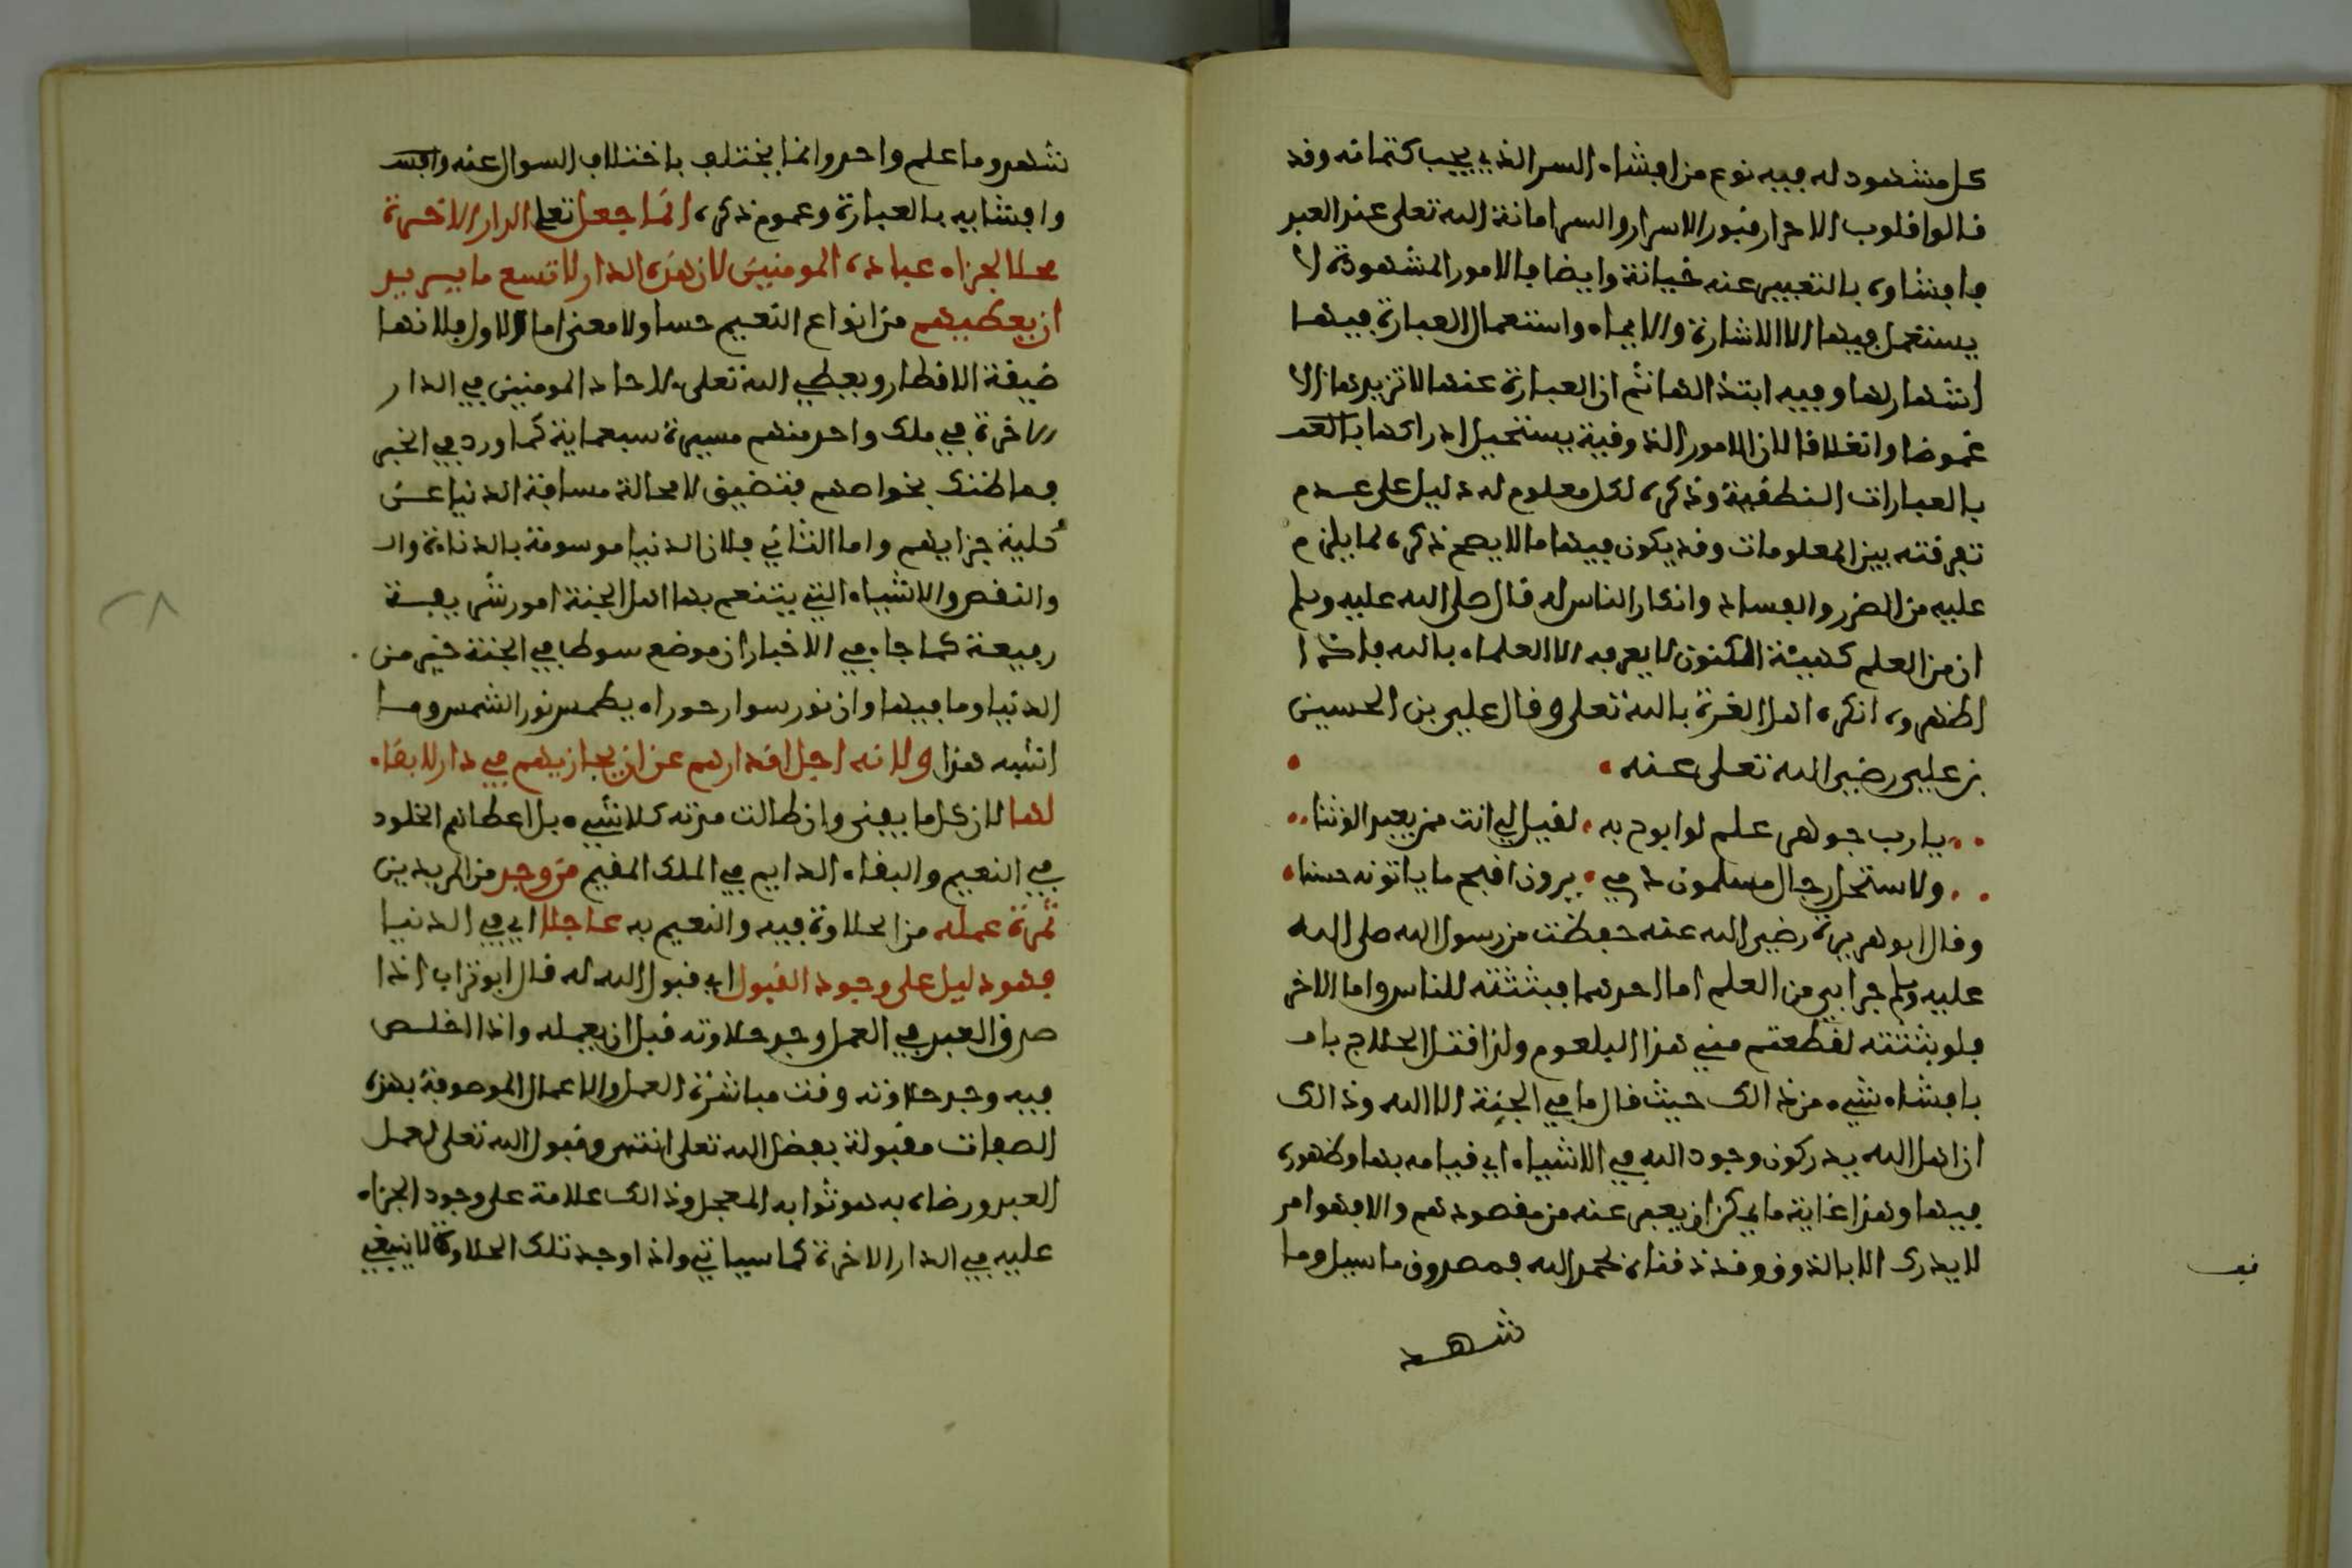 كل مشهود له فيه نوع من افشاء السر الذي يجب كتمانه وقد
قالوا قلوب الاحرار قبور الاسرار والسر امانة الله تعلى عند العبد
فافشاوه بالتعبير عنه خيانة وايضا فالامور المشهودة لا
يستعمل فيها الا الاشارة والايماء واستعمال العبارة فيها
اشهار لها وفيه ابتذالها ثم ان العبارة عنها لا تزيدها الا
غموضا وانغلاقا لان الامور الذوقية يستحيل ادراكها بالعبـ
بالعبارات النطقية وذكره لكل معلوم له دليل على عدم
تفرقته بين المعلومات وقد يكون فيها ما لا يصح ذكره لما يلزم
عليه من الضرر والفساد وانكار الناس له قال صلى الله عليه وسلم
ان من العلم كهيئة المكنون لا يعرفه الا العلماء بالله فاذا
اظهروه انكره اهل الغرة بالله تعلى وقال علي بن الحسين
بن علي رضي الله تعلى عنه
يا رب جوهر علم لو ابوح به لقيل لي انت ممن يعبد الوثنا
ولاستحل رجال مسلمون دمي يرون اقبح ما ياتونه حسنا
وقال ابو هريرة رضي الله عنه حفظت من رسول الله صلى الله
عليه وسلم جرابين من العلم اما احدهما فبثثته للناس واما الاخر
فلو بثثته لقطعتم مني هذا البلعوم ولذا قتل الحلاج باف
بافشاء شيء من ذالك حيث قال ما في الجبة الا الله وذالك
ان اهل الله يدركون وجود الله في الاشياء اي قيامه بها وظهوره
فيها وهذا غاية ما يمكن ان يعبر عنه من مقصودهم والا فهو امر
لا يدرك الا بالذوق وقد ذقناه بحمد الله فمصروف ما سيل وما
شهد
شهد وما علم واحد وانما يختلف باختلاف السوال عنه وافـشـ
وافشايه بالعبارة وعموم ذكره انما جعل تعلى الدار الاخرة
محلا لجزاء عباده المومنين لان هذه الدار لا تسع ما يريد
ان يعطيهم من انواع النعيم حسا ولا معنى اما الاول فلانها
ضيقة الاقطار ويعطي الله تعلى لاحاد المومنين في الدار
الاخرة في ملك واحد منهم مسيرة سبعماية كما ورد في الخبر
فما ظنك بخواصهم فتضيق لا محالة مسافة الدنيا عن
كلية جزايهم واما الثاني فلان الدنيا موسومة بالدناءة والـ
والنقص والاشياء التي يتنعم بها اهل الجنة امور شريفة
رفيعة كما جاء في الاخبار ان موضع سوط في الجنة خير من
الدنيا وما فيها وان نور سوار حوراء يطمس نور الشمس وما
اشبه هذا ولانه اجل اقدارهم عن ان يجازيهم في دار لا بقاء
لها لان كل ما يفنى وان طالت مدته كلا شيء بل اعطاهم الخلود
في النعيم والبقاء الدايم في الملك المقيم من وجد من المريدين
ثمرة عمله من الحلاوة فيه والنعيم به عاجلا اي في الدنيا
فهو دليل على وجود القبول اي قبول الله له قال ابو تراب اذا
صدق العبد في العمل وجد حلاوته قبل ان يعمله واذا اخلص
فيه وجد حلاوته وقت مباشرة العمل والاعمال الموصوفة بهذه
الصفات مقبولة بفضل الله تعلى انتهى وقبول الله تعلى لعمل
العبد ورضاه به هو ثوابه المعجل وذالك علامة على وجود الجزاء
عليه في الدار الاخرة كما سياتي واذا وجد تلك الحلاوة لا ينبغي